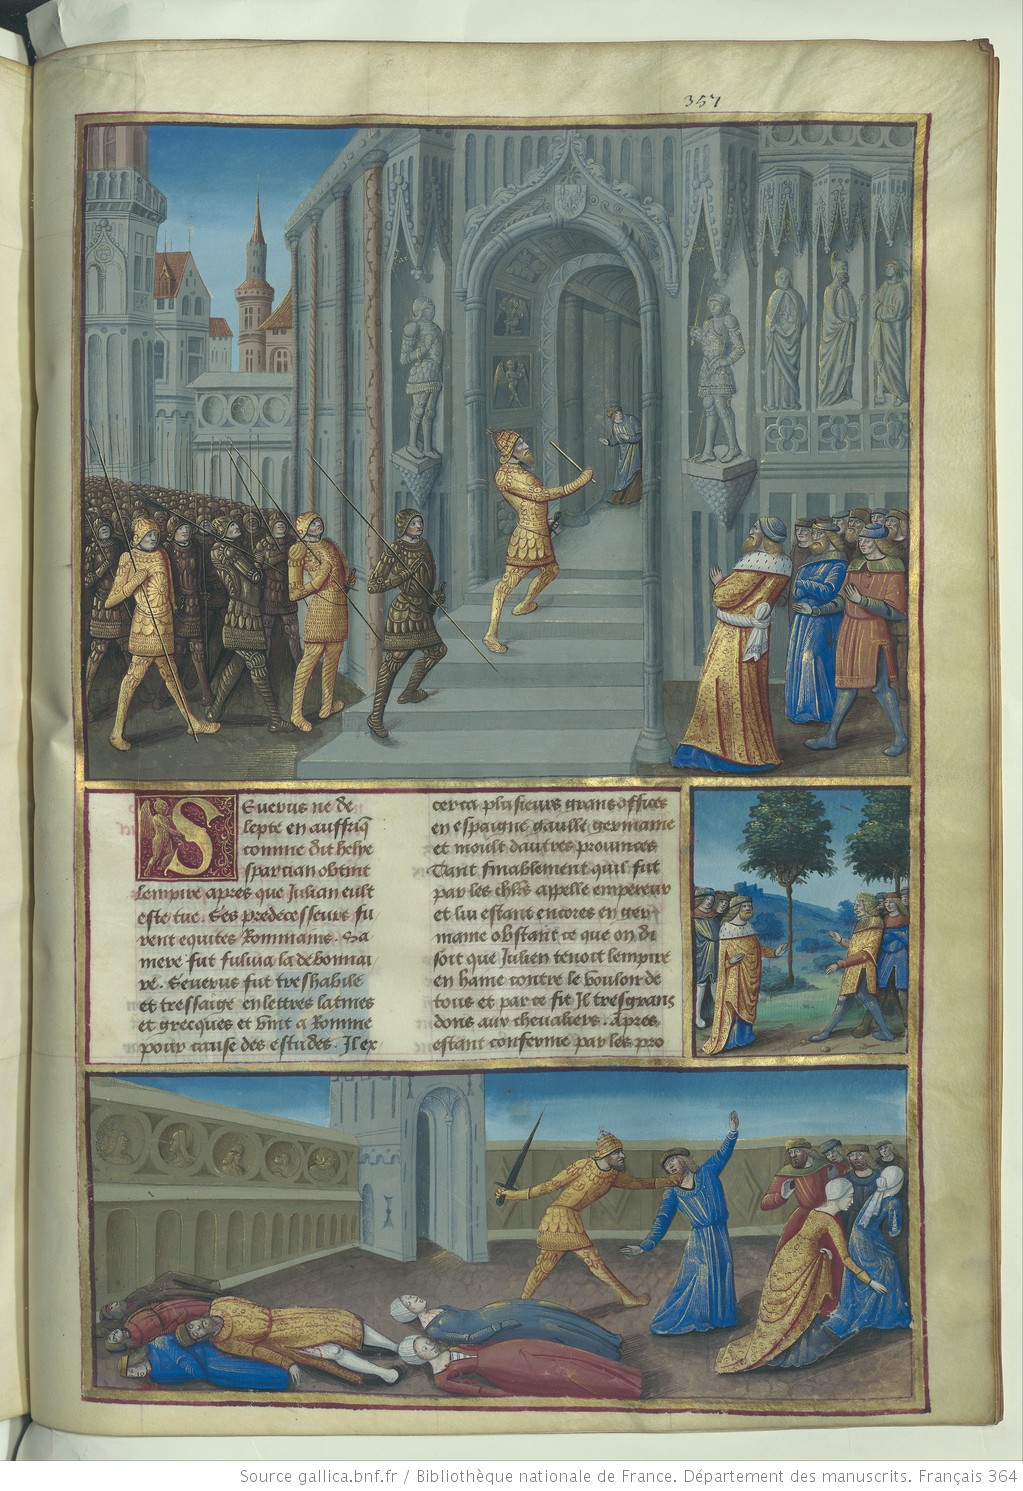 357
Seuerus ne de
lepte en auffriq̃
comme dit helye
spartian obtint
lempire apres que Julian eult
este tue. Ses predecesseurs fu
rent equites Rommains. Sa
mere fut fuluia la debonnai
re. Seuerus fut treshabile
et tressaige en lettres latines
et grecques et vint a Romme
pour cause des estudes. Il ex
cerca plusieurs grans offices
en espaigne gaulle germanie
et moult dautres prouinces
Tant finablement quil fut
par les chl̃rs appelle empereur
et lui estant encores en ger
manie obstant ce que on di
soit que Julien tenoit lempire
en hame contre le vouloir de
tous et par ce fit Il tresgrans
dons aux cheualiers. Apres
estant conferme par les pro
Source gallica.bnf.fr / Bibliothèque nationale de France. Département des manuscrits. Français 364